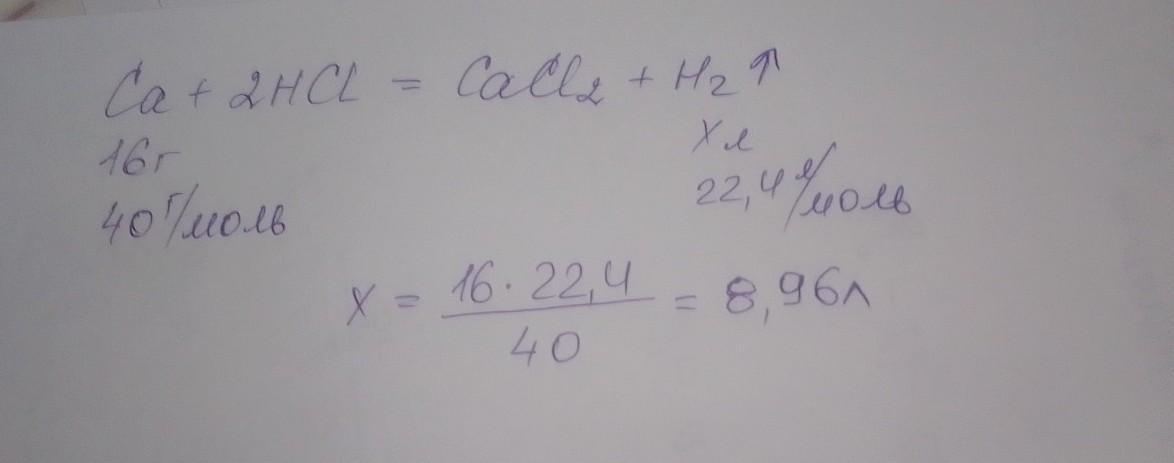 Ca + 2HCl = CaCl₂ + H₂↑
16г X л
40 г/моль 22,4 л/моль
X = 16 · 22,4 / 40 = 8,96л